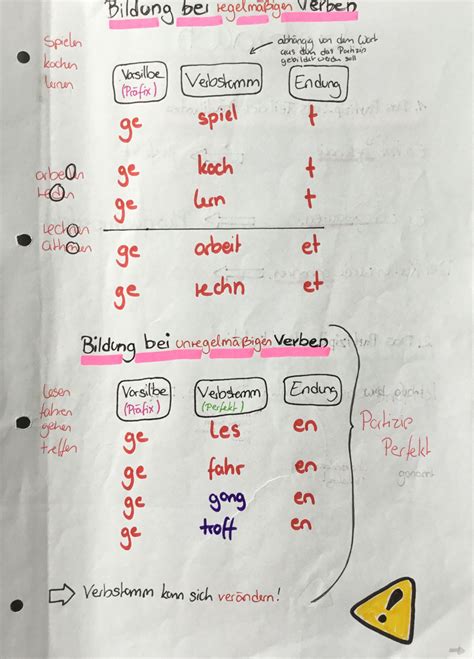 Bildung bei regelmäßigen Verben
spielen
kochen
lernen
abhängig von dem Wort
aus dem das Partizip
gebildet werden soll
Vorsilbe Verbstamm Endung
(Präfix)
ge spiel t
ge koch t
ge lern t
arbeiten
reden
rechnen
athmen
ge arbeit et
ge rechn et
Bildung bei unregelmäßigen Verben
Vorsilbe Verbstamm Endung
(Präfix) (Perfekt)
lesen
fahren
gehen
treffen
ge les en
ge fahr en
ge gang en
ge troff en
Partizip
Perfekt
⇨ Verbstamm kann sich verändern!
!